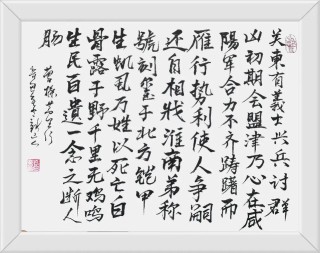 关東有義士兴兵讨群
凶初期会盟津乃心在咸
陽军合力不齐踌躇而
雁行势利使人争嗣
还自相戕淮南弟称
號刻玺于北方铠甲
生虮虱万姓以死亡白
骨露于野千里无鸡鸣
生民百遗一念之断人
肠
曹操蒿里行